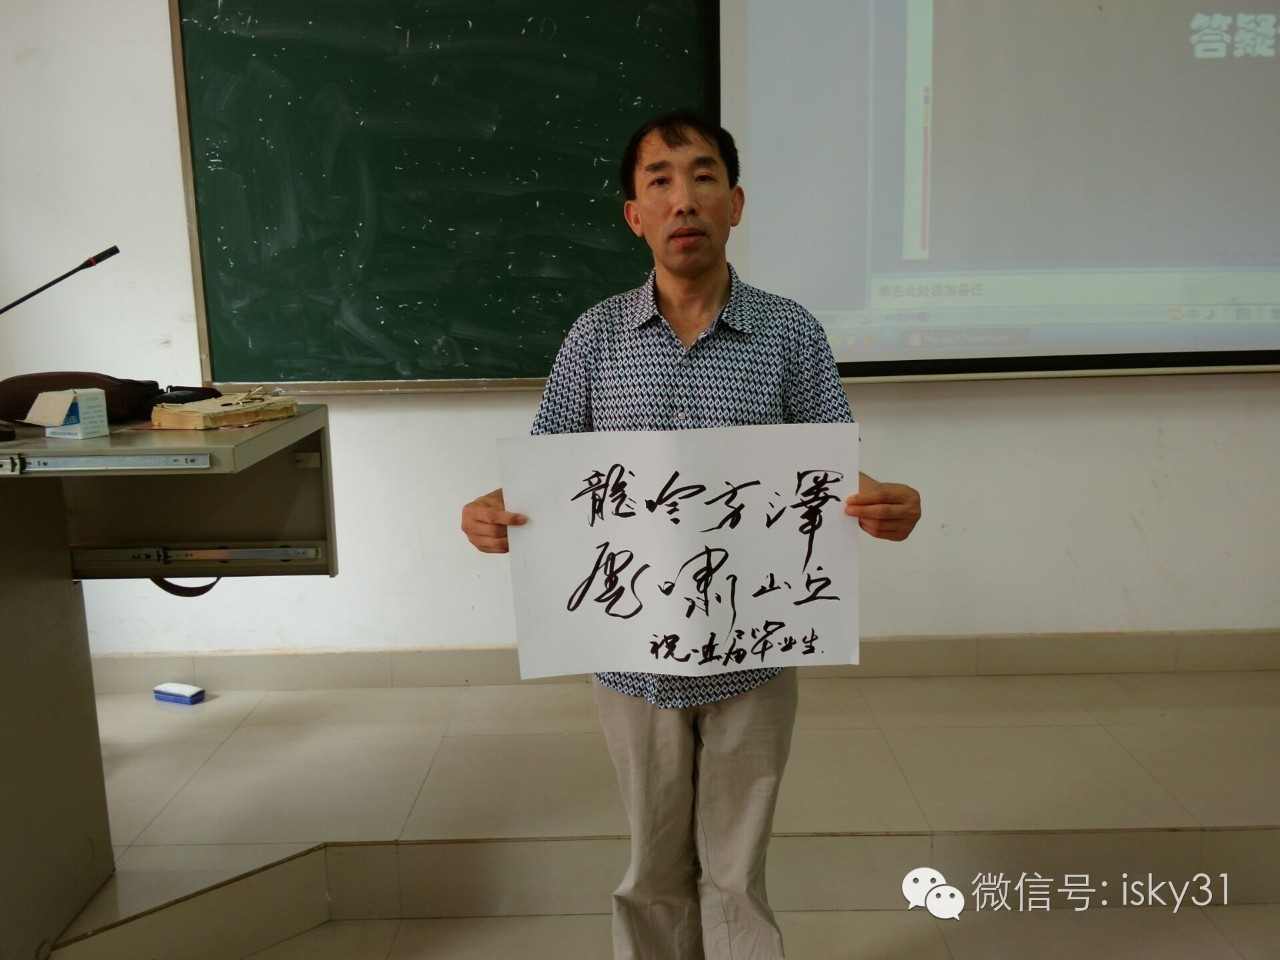 答疑
单击此处添加备注
龍吟方澤
虎嘯山丘
祝一五届毕业生
微信号: isky31